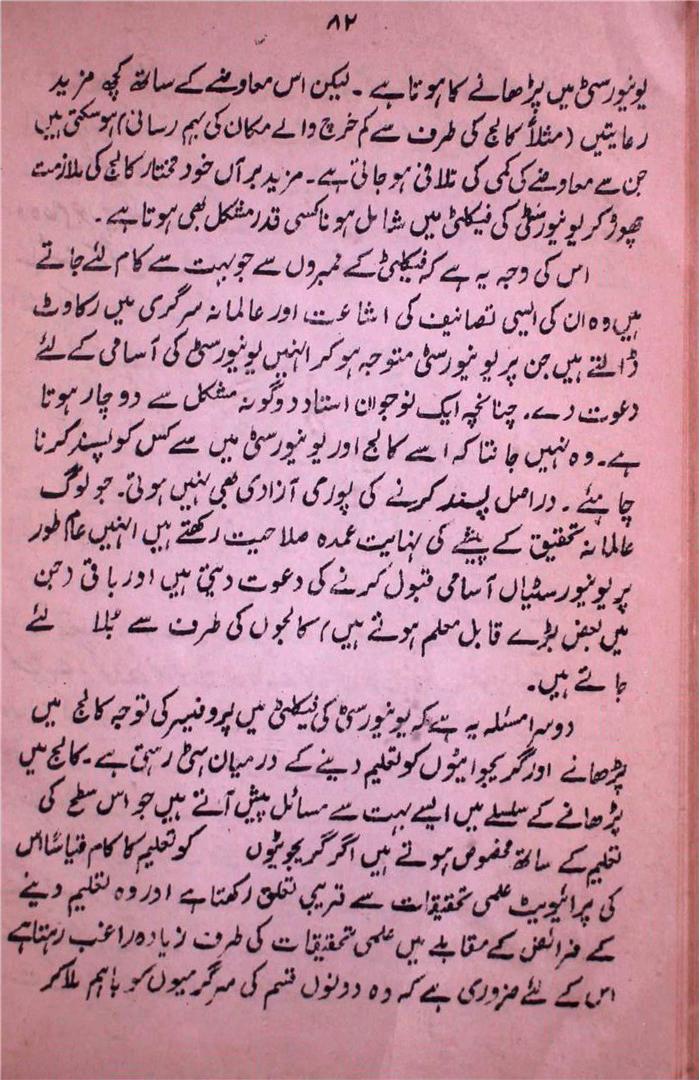 ۸۲
یونیورسٹی میں پڑھانے کا ہوتا ہے ۔ لیکن اس معاوضے کے ساتھ کچھ مزید
رعایتیں (مثلاً کالج کی طرف سے کم خرچ والے مکان کی بہم رسانی) ہو سکتی ہیں
جن سے معاوضے کی کمی کی تلافی ہو جاتی ہے ۔ مزید برآں خود مختار کالج کی ملازمت
چھوڑ کر یونیورسٹی کی فیکلٹی میں شامل ہونا کسی قدر مشکل بھی ہوتا ہے ۔
اس کی وجہ یہ ہے کہ فیکلٹی کے ممبروں سے جو بہت سے کام لئے جاتے
ہیں وہ ان کی ایسی تصانیف کی اشاعت اور عالمانہ سرگری میں رکاوٹ
ڈالتے ہیں جن پر یونیورسٹی متوجہ ہو کر انہیں یونیورسٹی کی آسامی کے لئے
دعوت دے ۔ چنانچہ ایک نوجوان استاد دوگونہ مشکل سے دو چار ہوتا
ہے ۔ وہ نہیں جانتا کہ اسے کالج اور یونیورسٹی میں سے کس کو پسند کرنا
چاہئیے ۔ دراصل پسند کرنے کی پوری آزادی بھی نہیں ہوتی ۔ جو لوگ
عالمانہ تحقیق کے پیشے کی نہایت عمدہ صلاحیت رکھتے ہیں انہیں عام طور
پر یونیورسٹیاں آسامی قبول کرنے کی دعوت دیتی ہیں اور باقی (جن
میں بعض بڑے قابل معلم ہوتے ہیں) کالجوں کی طرف سے بلا لئے
جاتے ہیں ۔
دوسرا مسئلہ یہ ہے کہ یونیورسٹی کی فیکلٹی میں پروفیسر کی توجہ کالج میں
پڑھانے اور گریجوایٹوں کو تعلیم دینے کے درمیان بٹی رہتی ہے ۔ کالج میں
پڑھانے کے سلسلے میں ایسے بہت سے مسائل پیش آتے ہیں جو اس سطح کی
تعلیم کے ساتھ مخصوص ہوتے ہیں اگر گریجوٹیوں کو تعلیم کا کام قیاساً اس
کی پرائیویٹ علمی تحقیقات سے قریبی تعلق رکھتا ہے اور وہ تعلیم دینے
کے فرائض کے مقابلے میں علمی تحقیقات کی طرف زیادہ راغب رہتا ہے
اس کے لئے ضروری ہے کہ وہ دونوں قسم کی سرگرمیوں کو باہم ملا کر